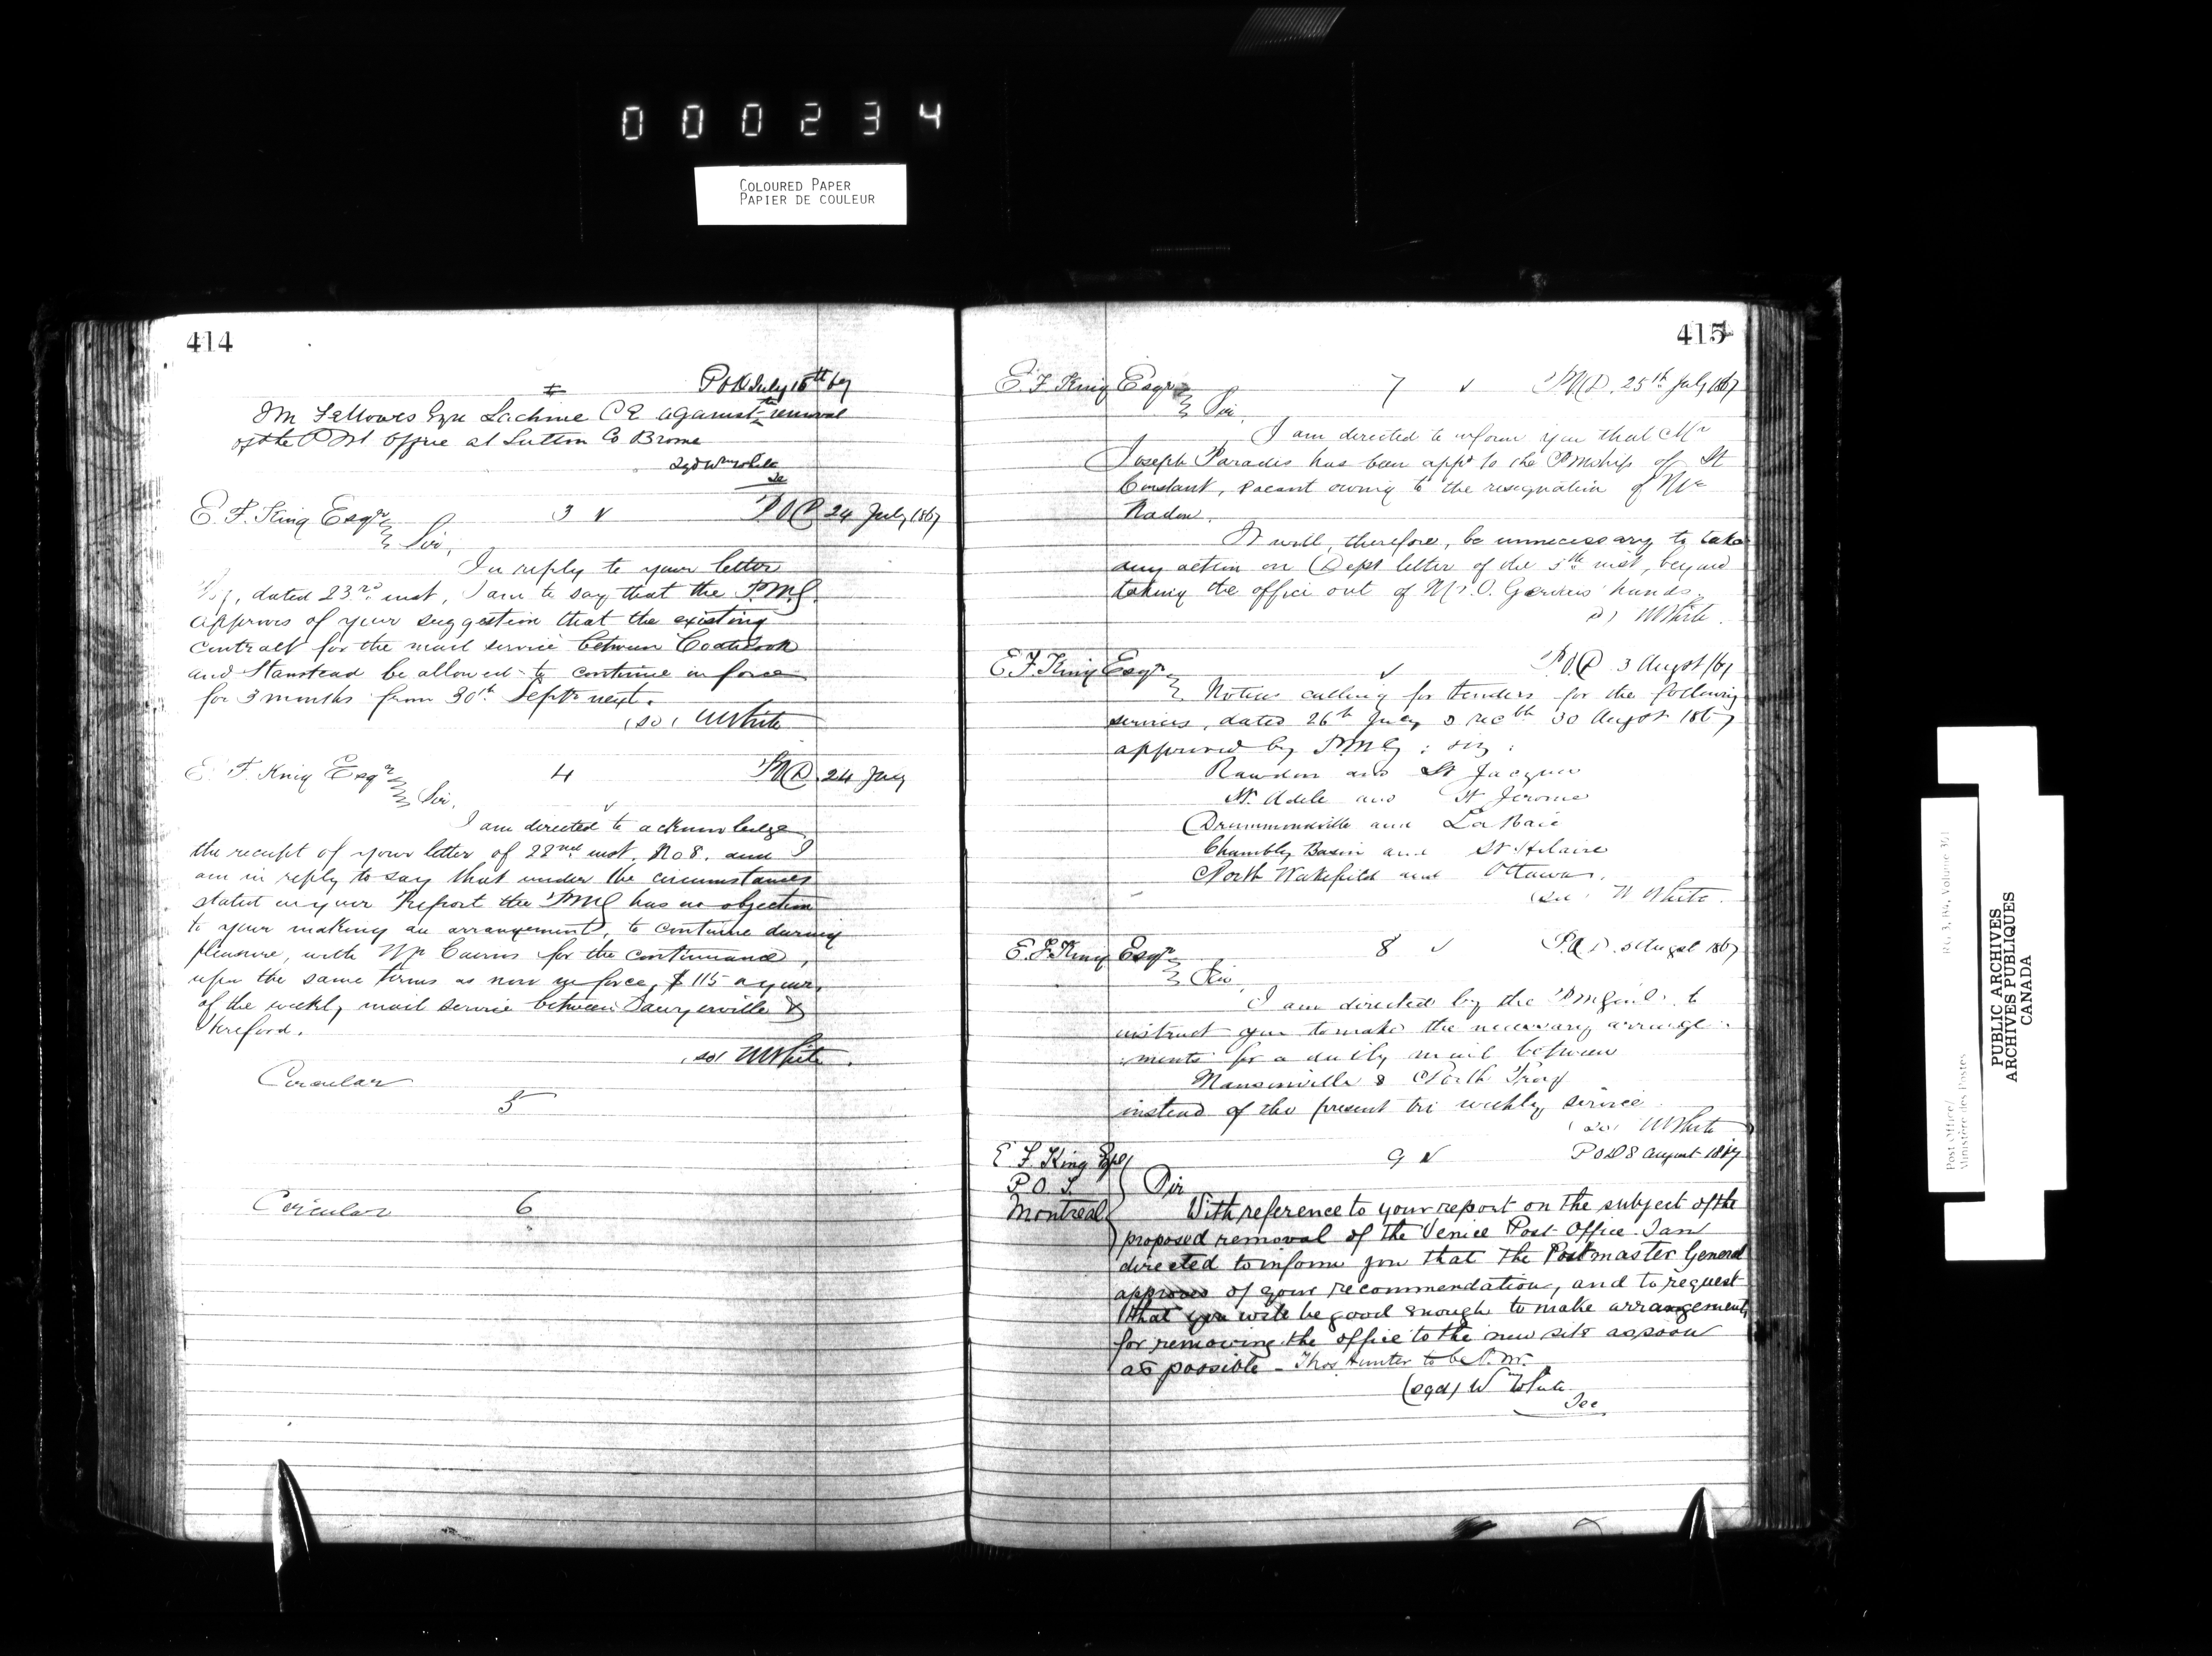 000234
COLOURED PAPER
PAPIER DE COULEUR
414
POD July 16th 67
Fellowes Esqre Lachine C E against the removal
of the Post Office at Sutton Co Brome
Sgd Wm White
Sec
E. F. King Esqre 3 POD 24 July 1867
Sir,
In reply to your letter
dated 23rd inst, I am to say that the P.M.G.
approves of your suggestion that the existing
contract for the mail service between Coaticook
and Stanstead be allowed to continue in force
for 3 months from 30th Septr next.
(sd) W White
E. F. King Esqre 4 POD 24 July
Sir,
I am directed to acknowledge
the receipt of your letter of 22nd inst. No 8. and I
am in reply to say that under the circumstances
stated in your Report the PMG has no objection
to your making an arrangement, to continue during
pleasure, with Mr Cairns for the continuance,
upon the same terms as now in force, $115 a year,
of the weekly mail service between Sawyerville &
Hereford.
(sd) W White.
Circular
5
Circular 6
415
E. F. King Esqre 7 POD. 25th July 1867
Sir,
I am directed to inform you that Mr
Joseph Paradis has been appd to the PMship of St
Constant, vacant owing to the resignation of Mr
It will, therefore, be unnecessary to take
any action on Dept letter of the 5th inst, beyond
taking the office out of Mr. O. Gervais' hands.
(sd) W White.
E. F. King Esqre POD 3 Augst /67
Notices calling for tenders for the following
services, dated 26th July & 30 August 1867
approved by P.M.G: viz:
Rawdon and St Jacques
St. Adele and St Jerome
Drummondville and La Baie
Chambly Basin and St Hilaire
North Wakefield and Ottawa.
(sd) W White.
E. F. King Esqre 8 POD. Augst 1867
Sir
I am directed by the PmGenl. to
instruct you to make the necessary arrange-
ments for a daily mail between
Mansonville & North Troy
instead of the present tri weekly service.
(sd) W White
E F. King Esqe 9 POD 8 August 1867
P O. I. Sir
Montreal With reference to your report on the subject of the
proposed removal of the Venice Post Office I am
directed to inform you that the Postmaster General
approves of your recommendation, and to request
that you will be good enough to make arrangements
for removing the office to the new site as soon
as possible - Thos Hunter to be P.M.
(sgd) Wm White
Sec
RG 3, Volume
Post Office/
Ministère des Postes
PUBLIC ARCHIVES
ARCHIVES PUBLIQUES
CANADA